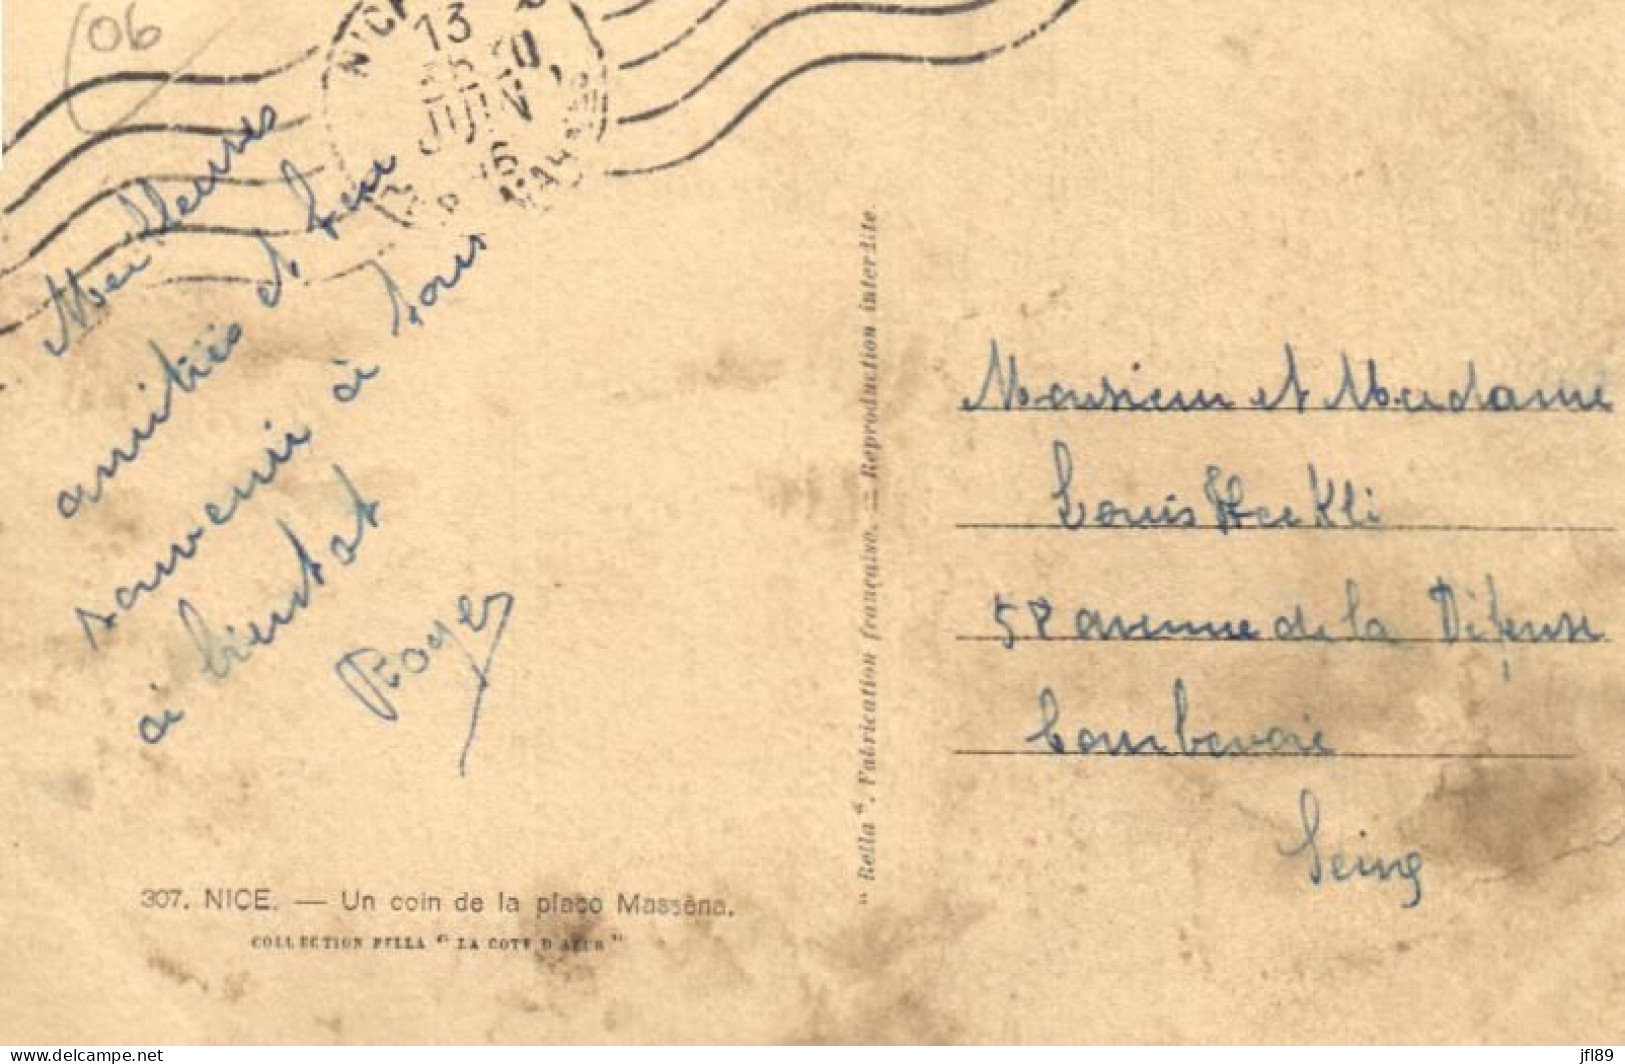 06
NICE
13
JUIN
Meilleures
amitiés et bon
souvenir à tous
à bientot
Roger
Monsieur et Madame
Louis
58 avenue de la Défense
Courbevoie
Seine
"Rella". Fabrication française. — Reproduction interdite.
307. NICE. — Un coin de la place Masséna.
COLLECTION RELLA "LA COTE D'AZUR"
delcampe.net
jfl89